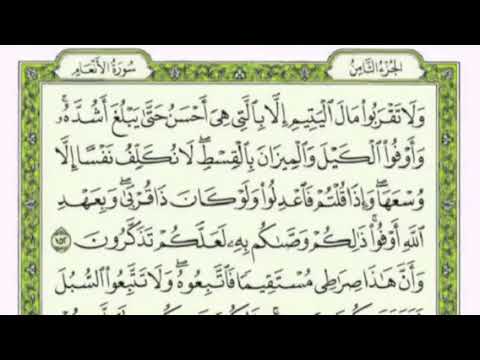 الجُزْءُ الثَّامِنُ
سُورَةُ الأَنْعَامِ
وَلَا تَقْرَبُوا۟ مَالَ ٱلْيَتِيمِ إِلَّا بِٱلَّتِى هِىَ أَحْسَنُ حَتَّىٰ يَبْلُغَ أَشُدَّهُۥ ۚ
وَأَوْفُوا۟ ٱلْكَيْلَ وَٱلْمِيزَانَ بِٱلْقِسْطِ ۖ لَا نُكَلِّفُ نَفْسًا إِلَّا
وُسْعَهَا ۖ وَإِذَا قُلْتُمْ فَٱعْدِلُوا۟ وَلَوْ كَانَ ذَا قُرْبَىٰ ۖ وَبِعَهْدِ
ٱللَّهِ أَوْفُوا۟ ۚ ذَٰلِكُمْ وَصَّىٰكُم بِهِۦ لَعَلَّكُمْ تَذَكَّرُونَ ١٥٢
وَأَنَّ هَٰذَا صِرَٰطِى مُسْتَقِيمًا فَٱتَّبِعُوهُ ۖ وَلَا تَتَّبِعُوا۟ ٱلسُّبُلَ